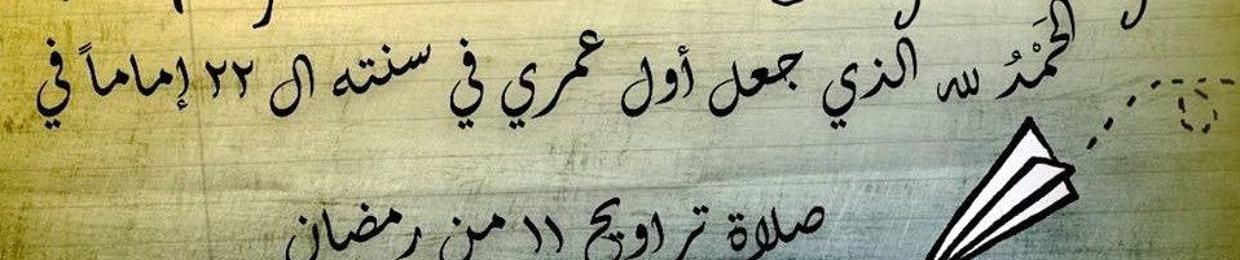 الحَمْدُ لله الذي جعل أول عمري في سنته ال ٢٢ إماماً في
صلاة تراويح ١١ من رمضان